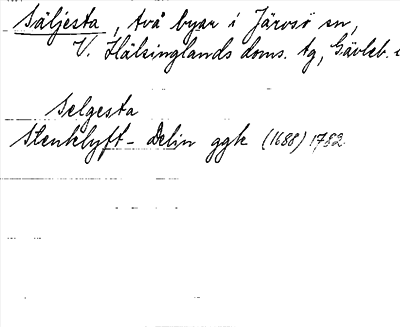 Säljesta, två byar i Järvsö sn,
V. Hälsinglands doms. tg, Gävleb.
Selgesta
Stenklyft - Delin ggk (1688) 1782